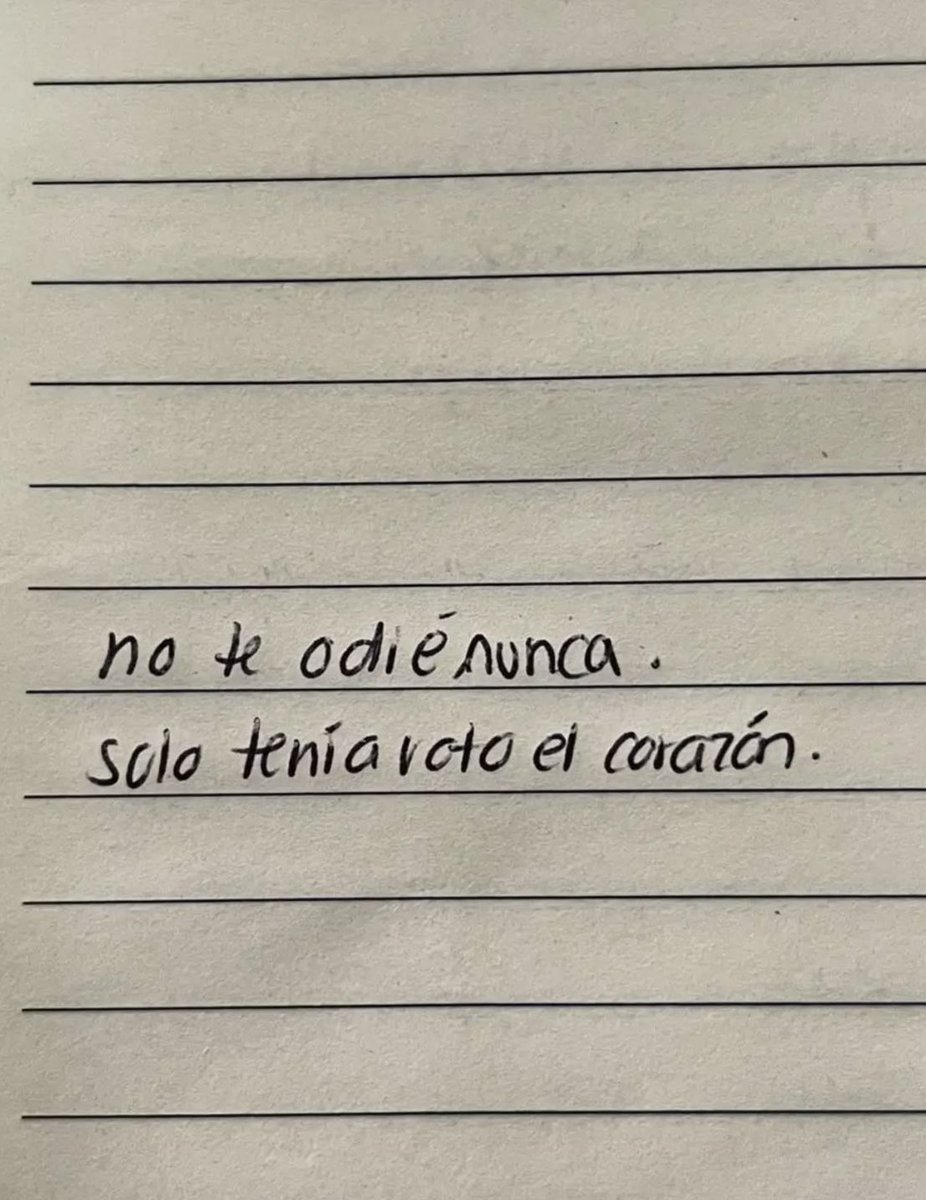 no te odié nunca.
solo tenía roto el corazón.